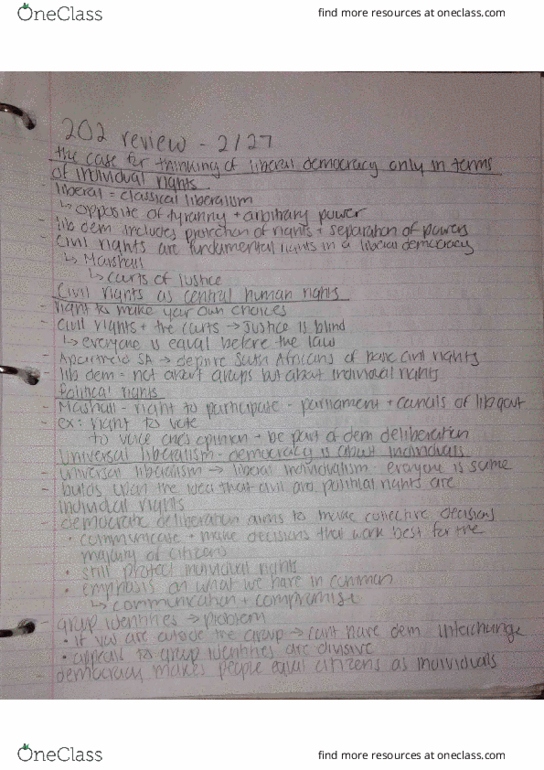 OneClass
find more resources at oneclass.com
202 review - 2/27
the case for thinking of liberal democracy only in terms
of individual rights
liberal = classical liberalism
↳ opposite of tyranny + arbitrary power
- lib dem includes protection of rights + separation of powers
- Civil rights are fundamental rights in a liberal democracy
↳ Marshall
↳ courts of justice
Civil rights as central human rights
- right to make your own choices
- Civil rights + the courts → Justice is blind
↳ everyone is equal before the law
- Apartheid SA → deprive South Africans of basic civil rights
- lib dem = not about groups but about individual rights
Political rights
- Marshall - right to participate - parliament + councils of lib gout
- ex: right to vote
to voice one's opinion + be part of dem deliberation
Universal liberalism - democracy is about individuals
- universal liberalism → liberal individualism: everyone is same
- builds upon the idea that civil and political rights are
individual rights
- democratic deliberation aims to make collective decisions
• communicate + make decisions that work best for the
majority of citizens
• still protect individual rights
• emphasis on what we have in common
↳ communication + compromise
- group identities → problem
• if you are outside the group → can't have dem interchange
• appeal to group identities are divisive
- democracy makes people equal citizens as individuals
OneClass
find more resources at oneclass.com